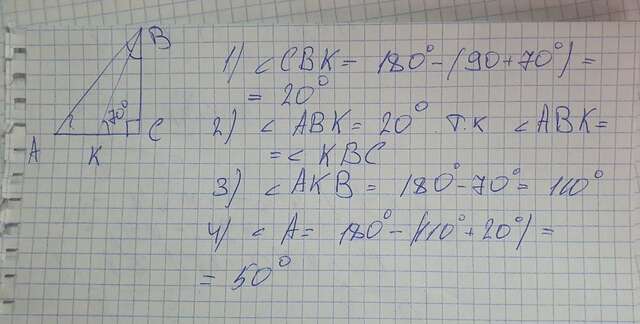 B
70°
?
A
K
C
1) < CBK = 180° - (90 + 70°) =
= 20°
2) < ABK = 20° т.к < ABK =
= < KBC
3) < AKB = 180° - 70° = 110°
4) < A = 180° - (110° + 20°) =
= 50°